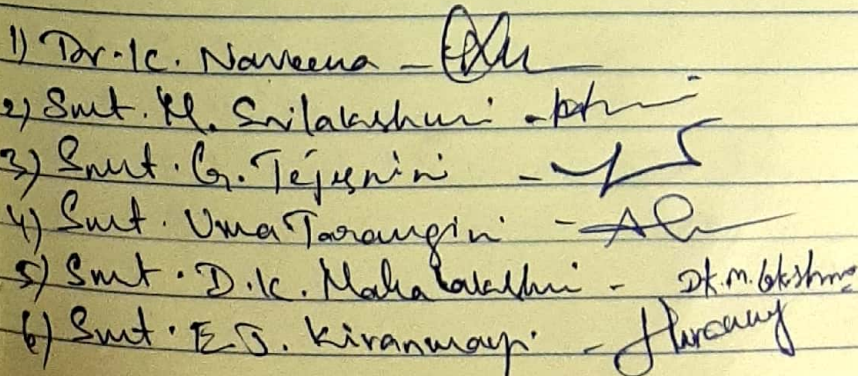 1) Dr. K. Naveena -
2) Smt. M. Srilakshmi -
3) Smt. G. Tejesnini -
4) Smt. Uma Tarangini -
5) Smt. D.K. Mahalakshmi - Dk.m.lakshmi
6) Smt. E.S. Kiranmayi -